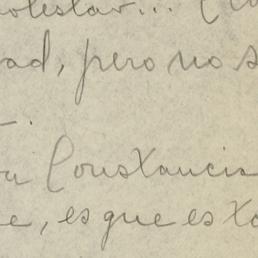 molestar... (
ad, pero no s
a Constancia
e, es que es ta